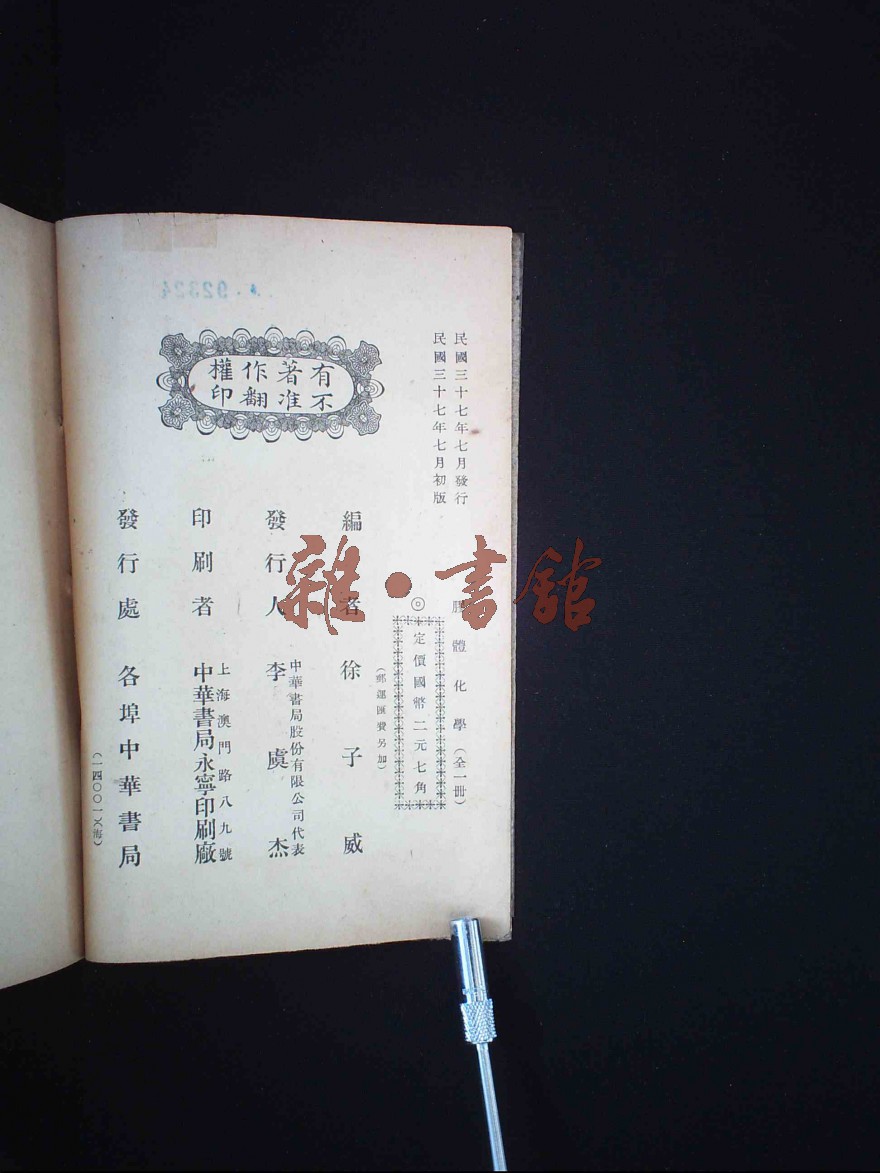 民國三十七年七月發行
民國三十七年七月初版
膠體化學（全一冊）
◎定價國幣二元七角
（郵運匯費另加）
編者 徐子威
中華書局股份有限公司代表
發行人 李虞杰
上海澳門路八九號
印刷者 中華書局永寧印刷廠
發行處 各埠中華書局
（一四〇〇一）（海）
有著作權
不准翻印
92324
雜·書館